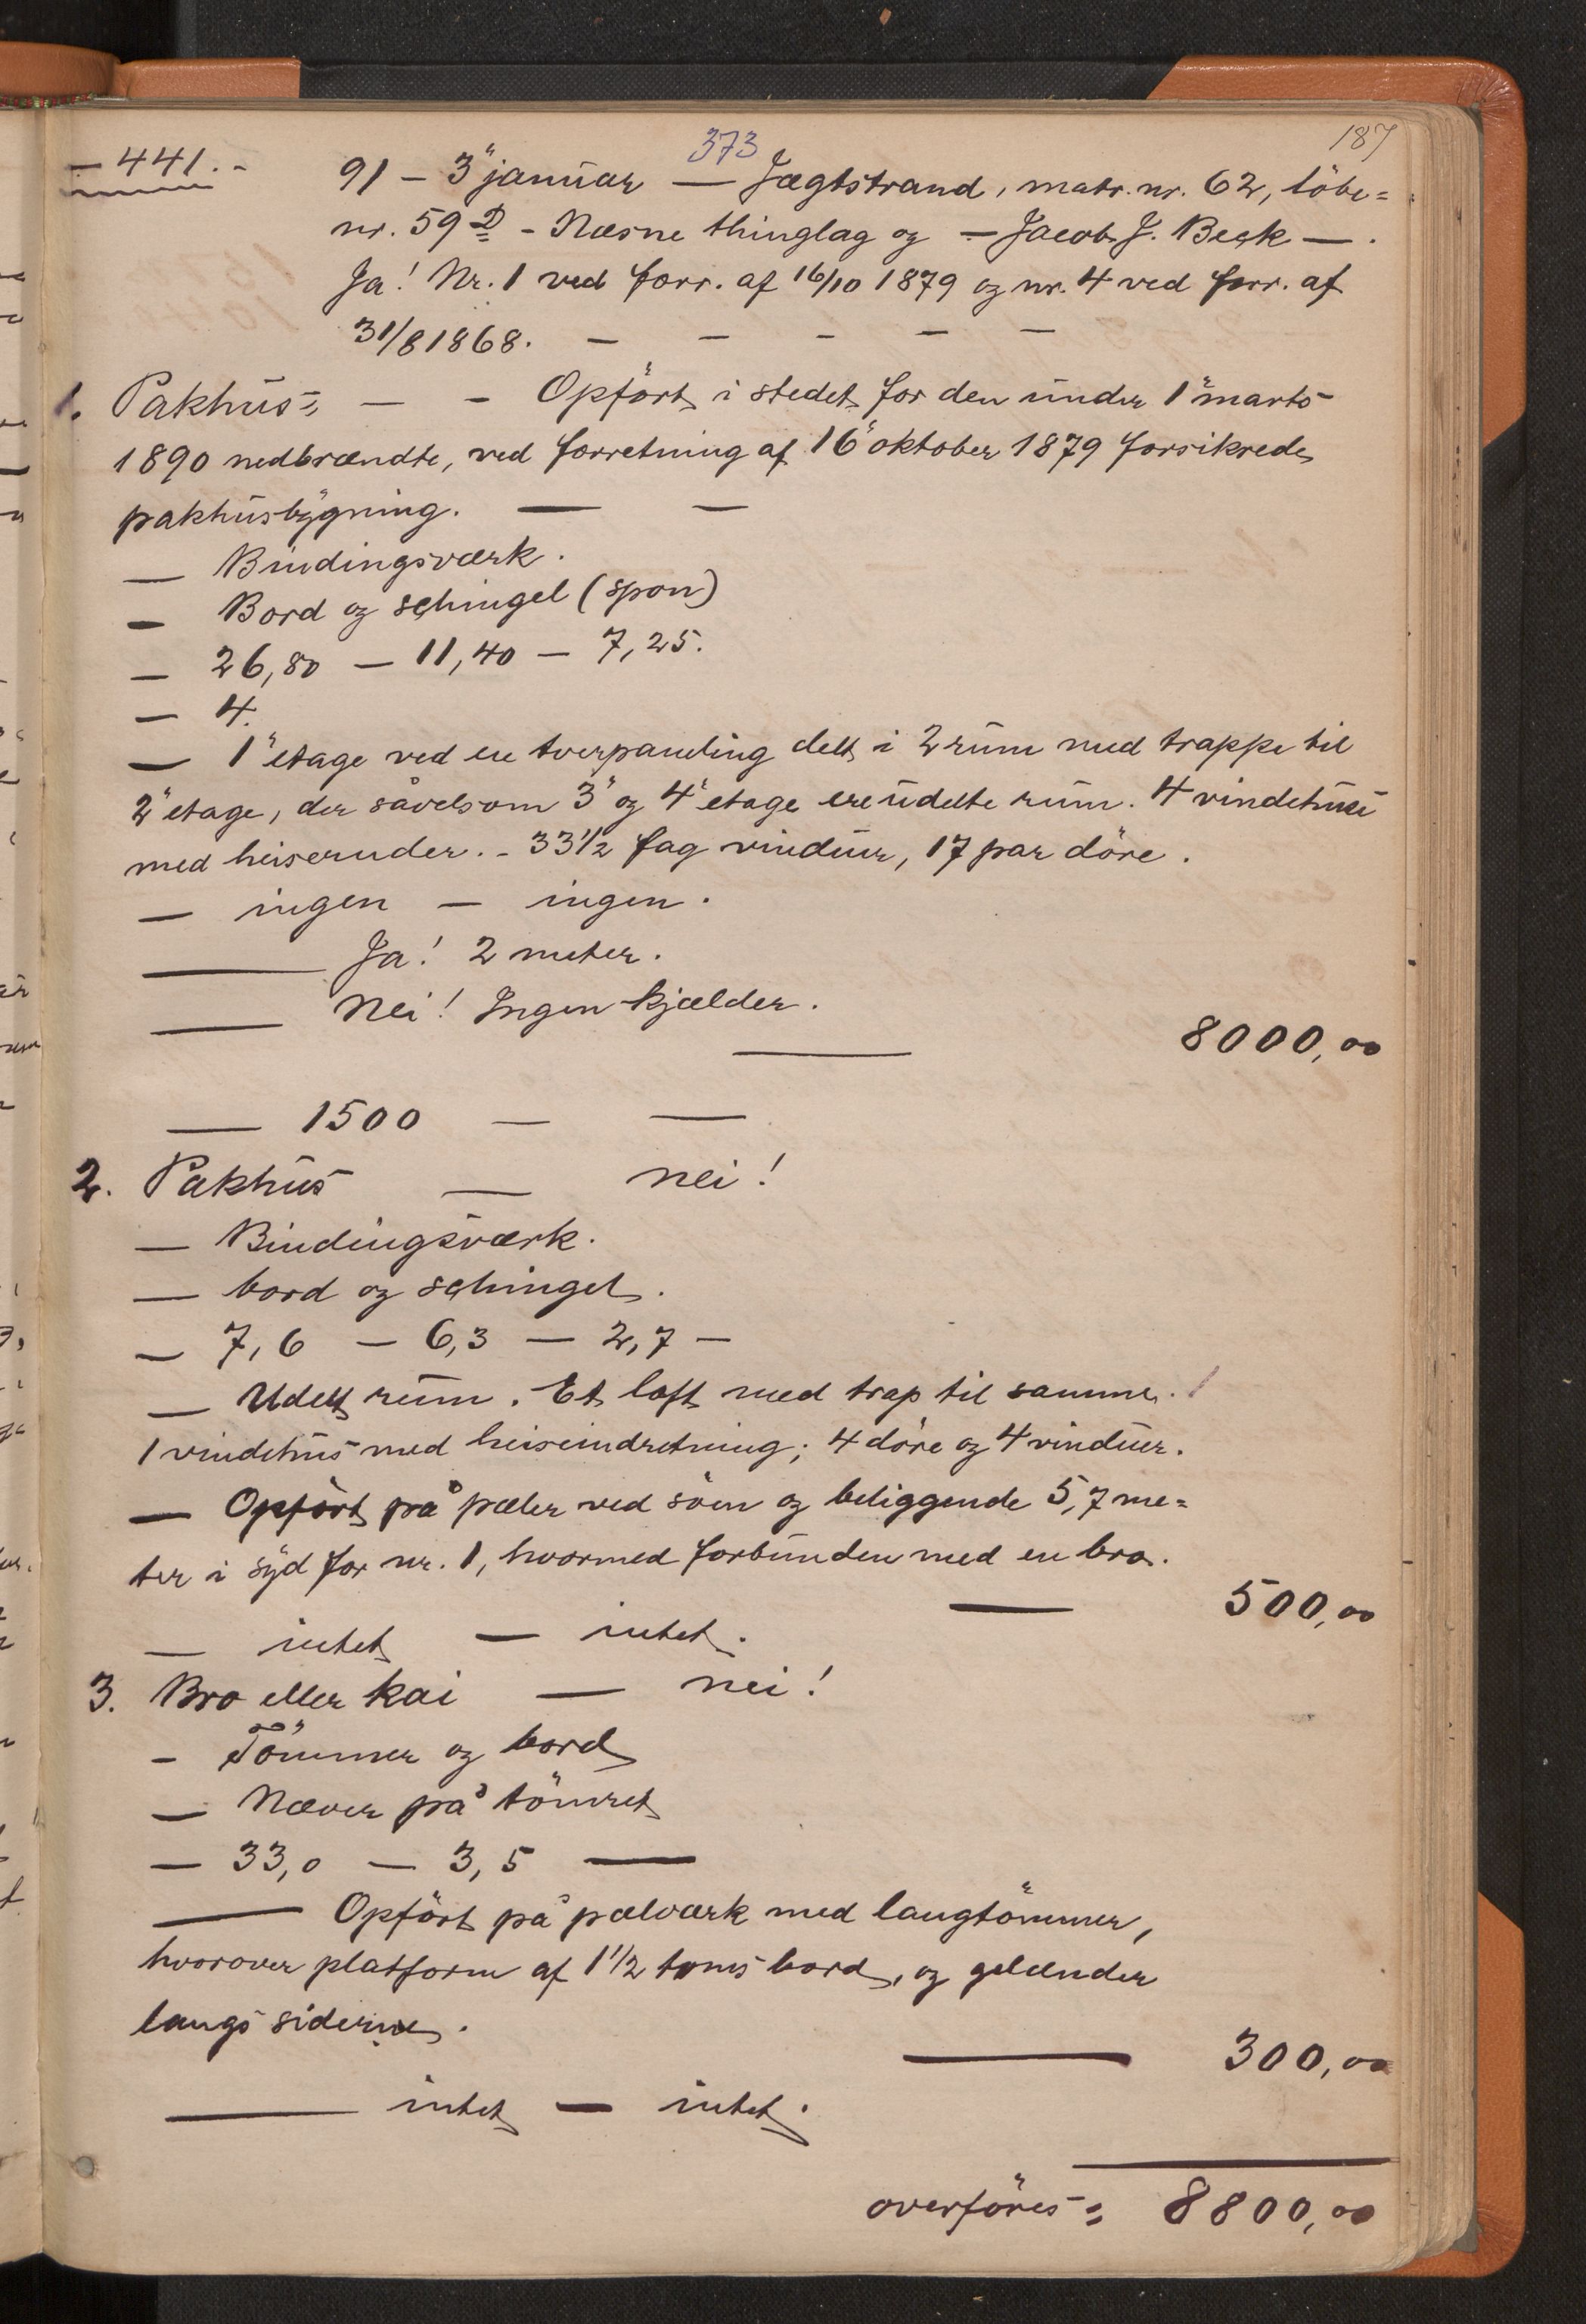 373
187
- 441. -
91 - 3" januar — Jægtstrand, matr. nr. 62, löbe=
nr. 59 D - Næsne thinglag og — Jacob J. Beck — .
Ja! Nr. 1 ved forr. af 16/10 1879 og nr. 4 ved forr. af
31/8 1868. — — — — —
1. Pakhus=, — - Opfört i stedet for den under 1" marts
1890 nedbrændte, ved forretning af 16" oktober 1879 forsikrede
pakhusbygning. — —
— Bindingsværk.
— Bord og schingel (spon)
— 26,80 — 11,40 — 7,25.
— 4.
— 1" etage ved en tverpanding delt i 2 rum med trappe til
2" etage, der såvelsom 3" og 4" etage ere udelte rum. 4 vindehuse
med heiseruder. - 33 1/2 fag vinduer, 17 par döre.
— ingen — ingen.
— Ja! 2 meter.
— Nei! Ingen kjælder.
— 8000,00
— 1500 — —
2. Pakhus — nei!
— Bindingsværk.
— bord og schingel.
— 7,6 — 6,3 — 2,7 —
— Udelt rum. Et loft med trap til samme.
1 vindehus med heiseindretning; 4 döre og 4 vinduer.
— Opfört på pæler ved söen og beliggende 5,7 me=
ter i syd for nr. 1, hvormed forbunden med en bro.
— 500,00
— intet — intet.
3. Bro eller kai — nei!
- Tömmer og bord
— Næver på tömret
— 33,0 — 3,5 —
— Opfört på pælværk med langtömmer,
hvorover platform af 1 1/2 toms bord, og gelænder
langs siderne.
— 300,00
— intet — intet.
overföres = 8800,00